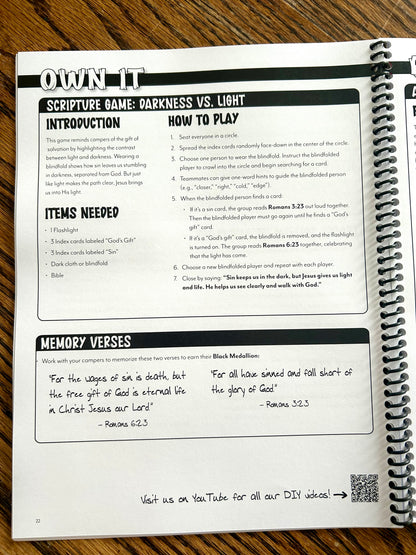 OWN IT
SCRIPTURE GAME: DARKNESS VS. LIGHT
INTRODUCTION
This game reminds campers of the gift of
salvation by highlighting the contrast
between light and darkness. Wearing a
blindfold shows how sin leaves us stumbling
in darkness, separated from God. But just
like light makes the path clear, Jesus brings
us into His light.
ITEMS NEEDED
• 1 Flashlight
• 3 Index cards labeled "God's Gift"
• 3 Index cards labeled "Sin"
• Dark cloth or blindfold
• Bible
HOW TO PLAY
1. Seat everyone in a circle.
2. Spread the index cards randomly face-down in the center of the circle.
3. Choose one person to wear the blindfold. Instruct the blindfolded
player to crawl into the circle and begin searching for a card.
4. Teammates can give one-word hints to guide the blindfolded person
(e.g., "closer," "right," "cold," "edge").
5. When the blindfolded person finds a card:
• If it's a sin card, the group reads Romans 3:23 out loud together.
Then the blindfolded player must go again until he finds a "God's
gift" card.
• If it's a "God's gift" card, the blindfold is removed, and the flashlight
is turned on. The group reads Romans 6:23 together, celebrating
that the light has come.
6. Choose a new blindfolded player and repeat with each player.
7. Close by saying: "Sin keeps us in the dark, but Jesus gives us light
and life. He helps us see clearly and walk with God."
MEMORY VERSES
Work with your campers to memorize these two verses to earn their Black Medallion:
"For the wages of sin is death, but
the free gift of God is eternal life
in Christ Jesus our Lord."
– Romans 6:23
"For all have sinned and fall short of
the glory of God."
– Romans 3:23
Visit us on YouTube for all our DIY videos! →
22